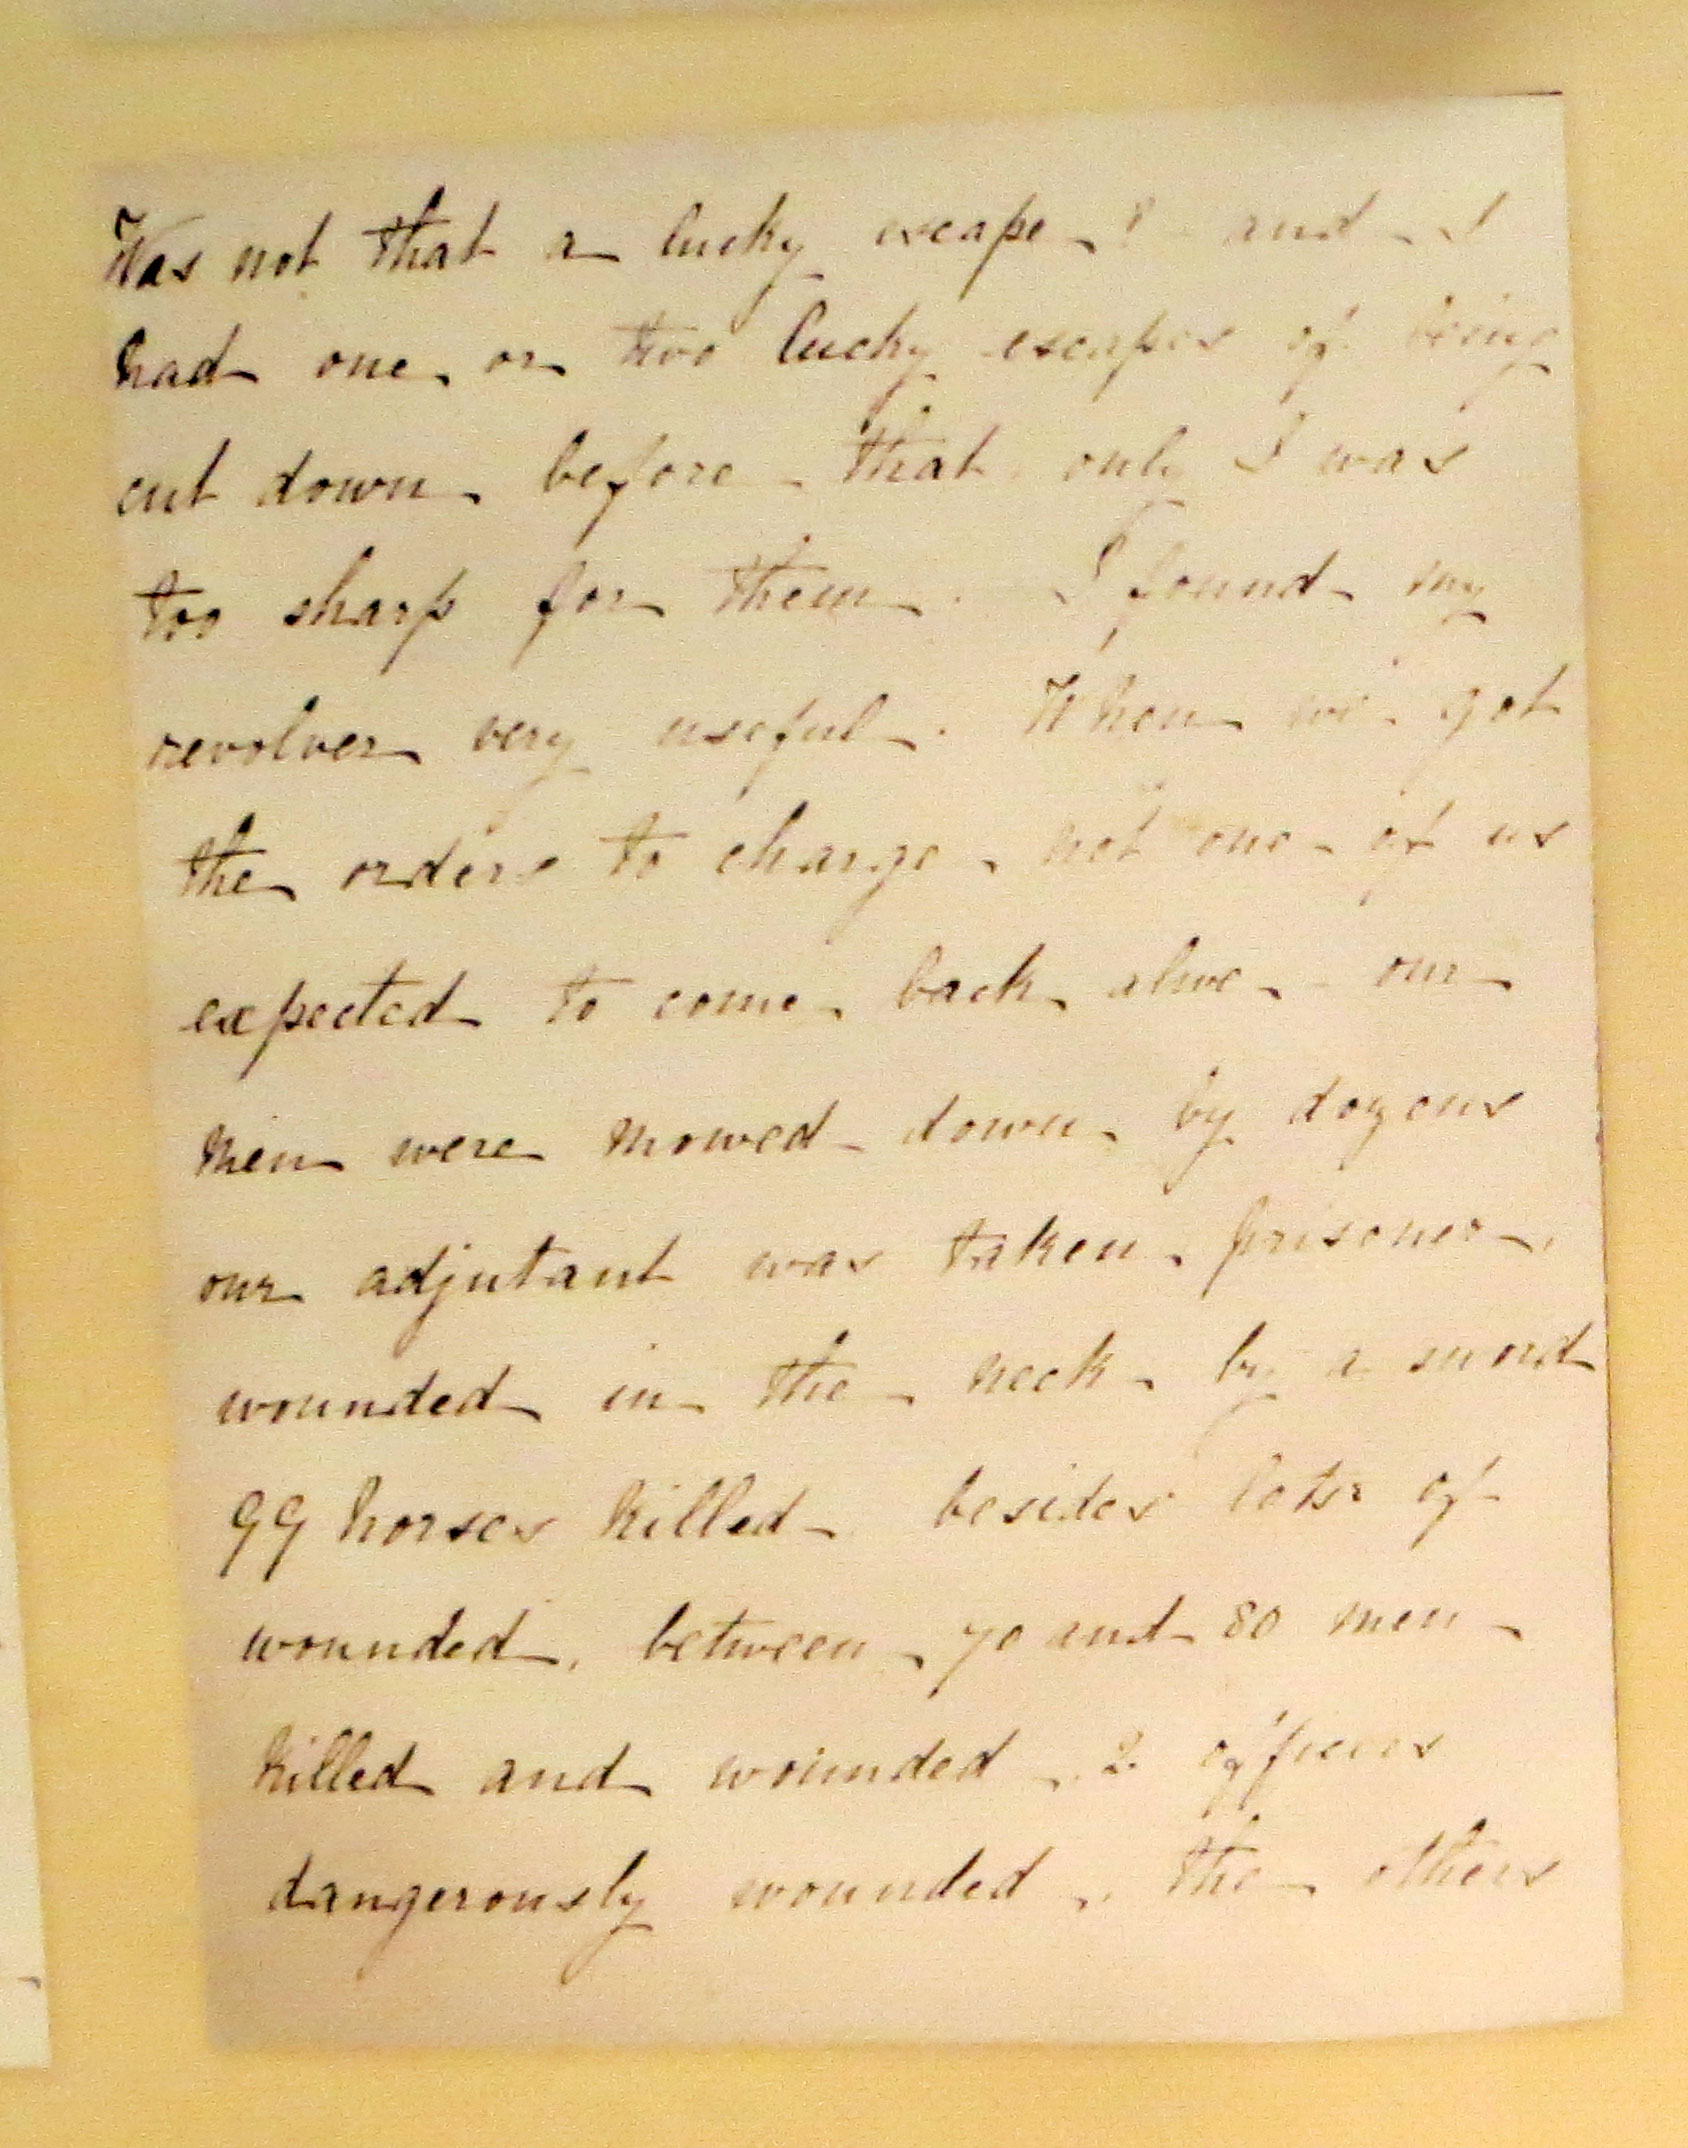 Was not that a lucky escape? and I
had one or two lucky escapes of being
cut down before that only I was
too sharp for them. I found my
revolver very useful. When we got
the orders to charge not one of us
expected to come back alive our
men were mowed down by dozens
our adjutant was taken prisoner,
wounded in the neck by a sword
99 horses killed besides lots of
wounded, between 70 and 80 men
killed and wounded 2 officers
dangerously wounded, the others